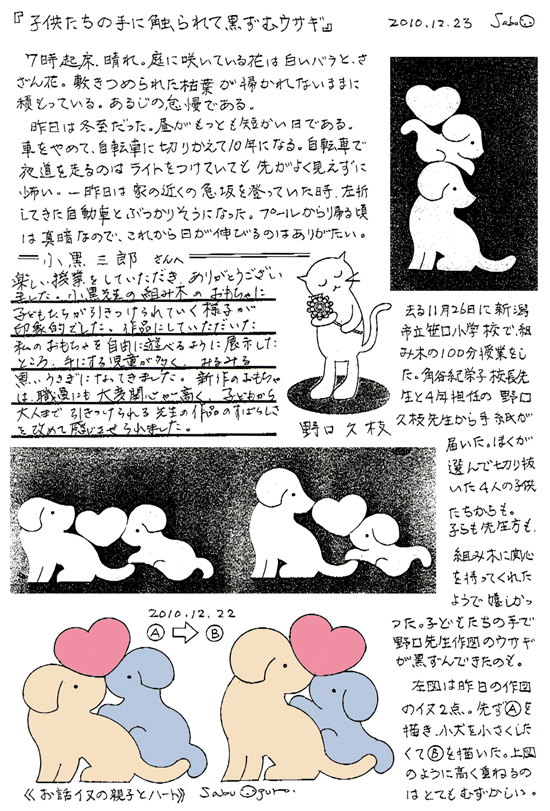 『子供たちの手に触られて黒ずむウサギ』
2010.12.23 Sabu
7時起床、晴れ。庭に咲いている花は白いバラと、さ
ざん花。敷きつめられた枯葉が掃かれないままに
積もっている。あるじの怠慢である。
昨日は冬至だった。昼がもっとも短かい日である。
車をやめて、自転車に切りかえて10年になる。自転車で
夜道を走るのはライトをつけていても先がよく見えずに
怖い。一昨日は家の近くの急坂を登っていた時、左折
してきた自動車とぶつかりそうになった。プールから帰る頃
は真暗なので、これから日が伸びるのはありがたい。
小黒三郎さんへ
楽しい授業をしていただき、ありがとうござい
ました。小黒先生の組み木のおもちゃに
子どもたちが引きつけられていく様子が
印象的でした。作品にしていただいた
私のおもちゃを自由に遊べるように展示した
ところ、手にする児童が多く、みるみる
黒いうさぎになってきました。新作のおもちゃ
は、職員にも大変関心が高く、子どもから
大人まで引きつけられる先生の作品のすばらしさ
を改めて感じさせられました。
野口久枝
去る11月26日に新潟
市立笹口小学校で、組
み木の100分授業をし
た。角谷紀栄子校長先
生と4年担任の野口
久枝先生から手紙が
届いた。ぼくが
選んで切り抜
いた4人の子供
たちからも。
子らも先生方も、
組み木に関心
を持ってくれた
ようで嬉しかっ
った。子どもたちの手で
野口先生作図のウサギ
が黒ずんできたのも。
左図は昨日の作図
のイヌ2点。先ずⒶを
描き、小犬を小さくした
くてⒷを描いた。上図
のように高く重ねるの
はとてもむずかしい。
2010.12.22
Ⓐ⇨Ⓑ
《お話イヌの親子とハート》 Sabu Oguro.